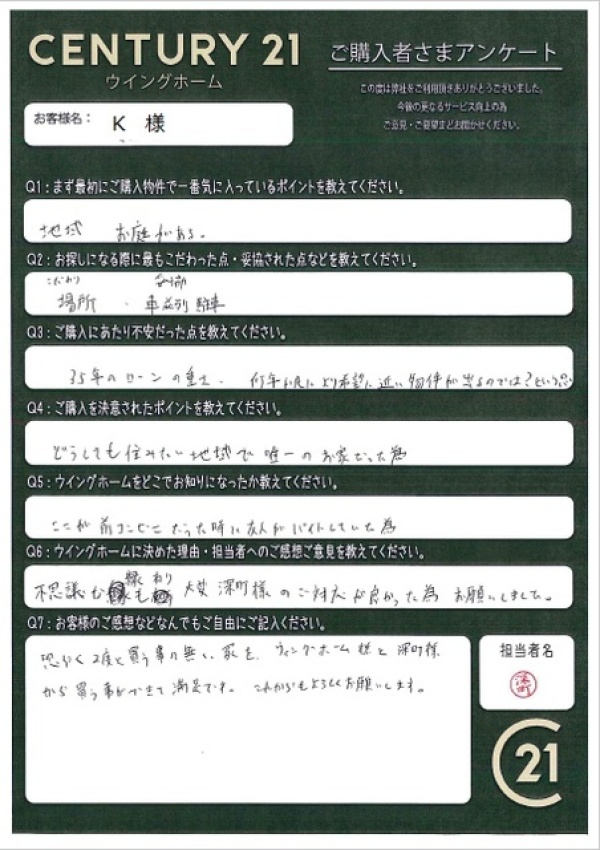 CENTURY 21
ウイングホーム
ご購入者さまアンケート
この度は弊社をご利用頂きありがとうございました。
今後の更なるサービス向上の為
ご意見・ご要望をお聞かせください。
お客様名： K 様
Q1：まず最初にご購入物件で一番気に入っているポイントを教えてください。
地域 お庭がある。
Q2：お探しになる際に最もこだわった点・妥協された点などを教えてください。
こだわり 妥協
場所 ・ 車並列駐車
Q3：ご購入にあたり不安だった点を教えてください。
35年のローンの重さ、何年か後により希望に近い物件が出るのでは？という
Q4：ご購入を決意されたポイントを教えてください。
どうしても住みたい地域で唯一のお家だった為
Q5：ウイングホームをどこでお知りになったか教えてください。
ここが前コンビニだった時に友人がバイトしていた為
Q6：ウイングホームに決めた理由・担当者へのご感想ご意見を教えてください。
不思議な縁もあり 大変 深町様のご対応が良かった為 お願いしました。
Q7：お客様のご感想などなんでもご自由にご記入ください。
恐らく2度と買う事の無い家を、ウィングホーム様と深町様
から買う事ができて満足です。これからもよろしくお願いします。
担当者名
深町
21